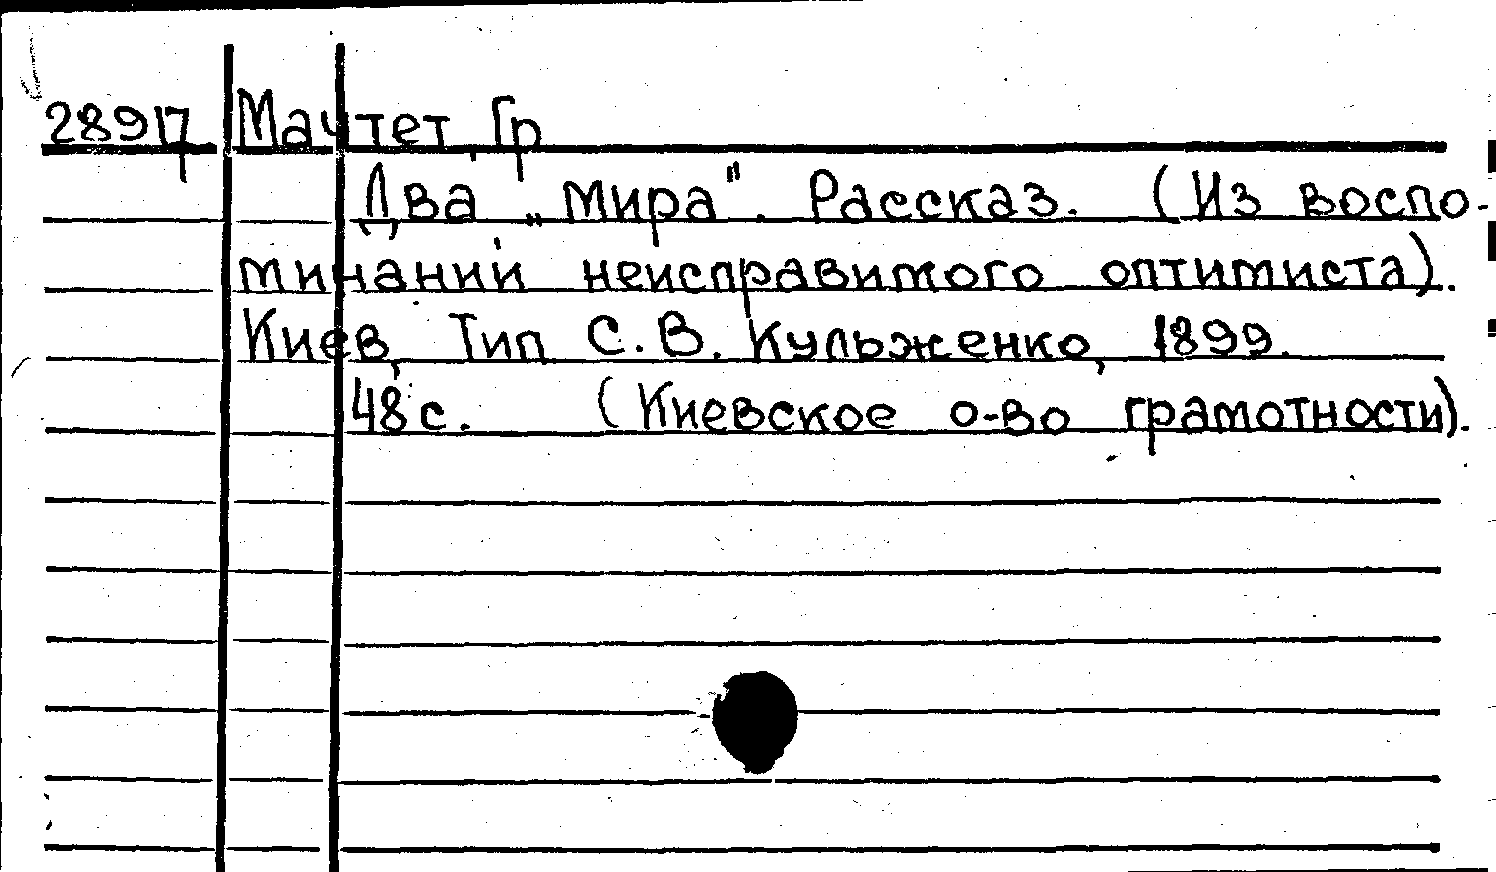 28917 Мачтет, Гр
Два „мира". Рассказ. (Из воспо-
минаний неисправимого оптимиста).
Киев, Тип С.В. Кульженко, 1899.
48 с. (Киевское о-во грамотности).